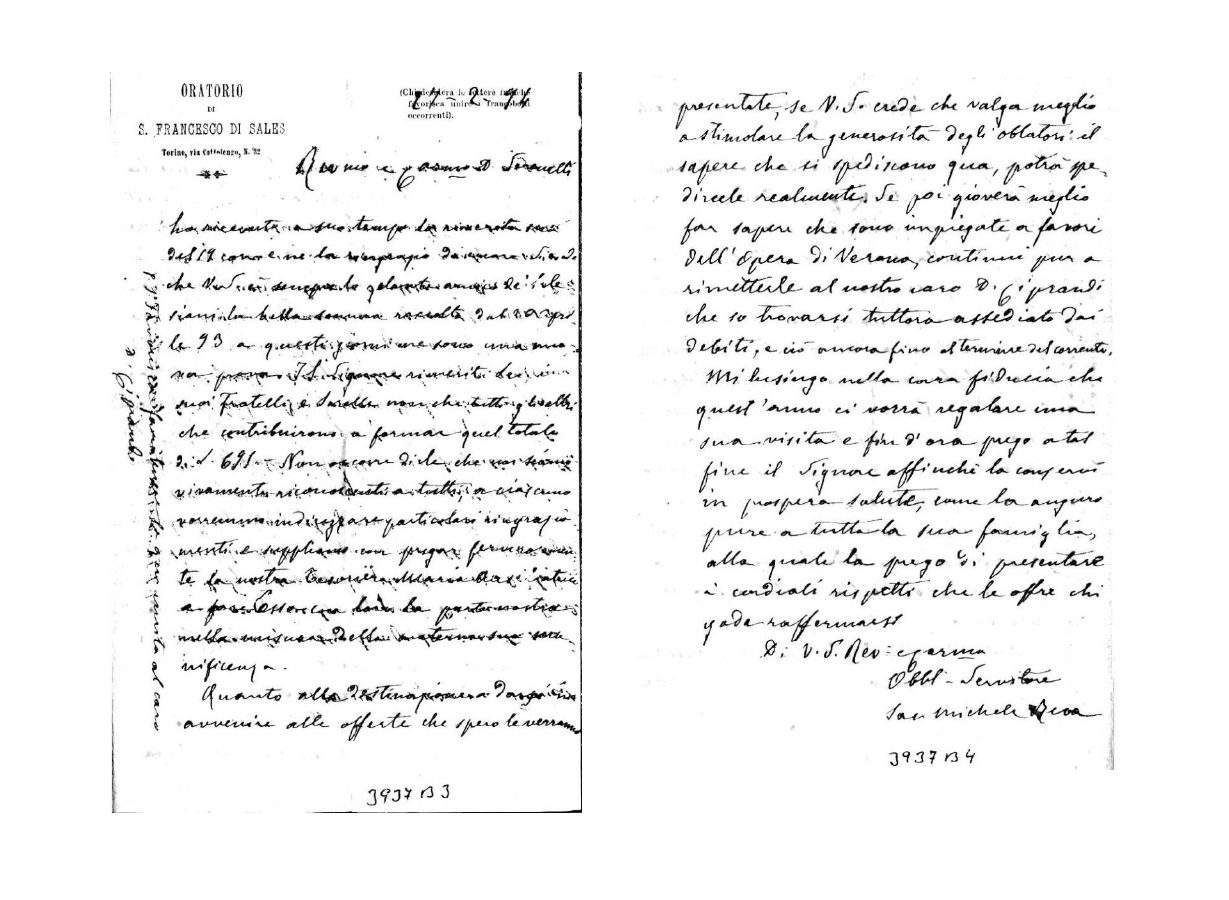 ORATORIO
DI
S. FRANCESCO DI SALES
Torino, via Cottolengo, N. 32
(Chi desidera lettere
favorisca unire i francobolli
occorrenti).
Revmo e Carmo D.
ho ricevuto a suo tempo la riverita sua
del 19 e ne la ringrazio
che V. S. è sempre lo zelante amico dei Sale
siani la bella somma raccolta dal
le 93 a questi giorni ne sono una nuo
va prova. Il Signore rimeriti Lei, i
suoi fratelli e sorelle non che tutti gli altri
che contribuirono a formar quel totale
di L. 691. - Non occorre dirle che noi siamo
vivamente riconoscenti a tutti, a ciascuno
vorremmo indirizzare particolari ringrazia
menti e suppliamo con pregar fervorosamen
te la nostra Tesoriera Maria Ausiliatrice
a far Essa con loro la parte nostra
nella misura della materna sua mu
nificenza.
Quanto alla destinazione a darsi in
avvenire alle offerte che spero le verranno
visita al caro
D. Ciprandi
3937 B 3
presentate, se V. S. crede che valga meglio
a stimolare la generosità degli oblatori il
sapere che si spediscono qua, potrà spe
dircele realmente. Se poi gioverà meglio
far sapere che sono impiegate a favore
dell'Opera di Verona, continui pur a
rimetterle al nostro caro D. Ciprandi
che so trovarsi tuttora assediato dai
debiti, e ciò ancora fino al termine del corrente.
Mi lusingo nella cara fiducia che
quest'anno ci vorrà regalare una
sua visita e fin d'ora prego a tal
fine il Signore affinchè la conservi
in prospera salute, come la auguro
pure a tutta la sua famiglia,
alla quale la prego di presentare
i cordiali rispetti che le offre chi
gode raffermarsi
Di V. S. Rev. e Carma
Obbl - Servitore
Sac. Michele Rua
3937 B 4